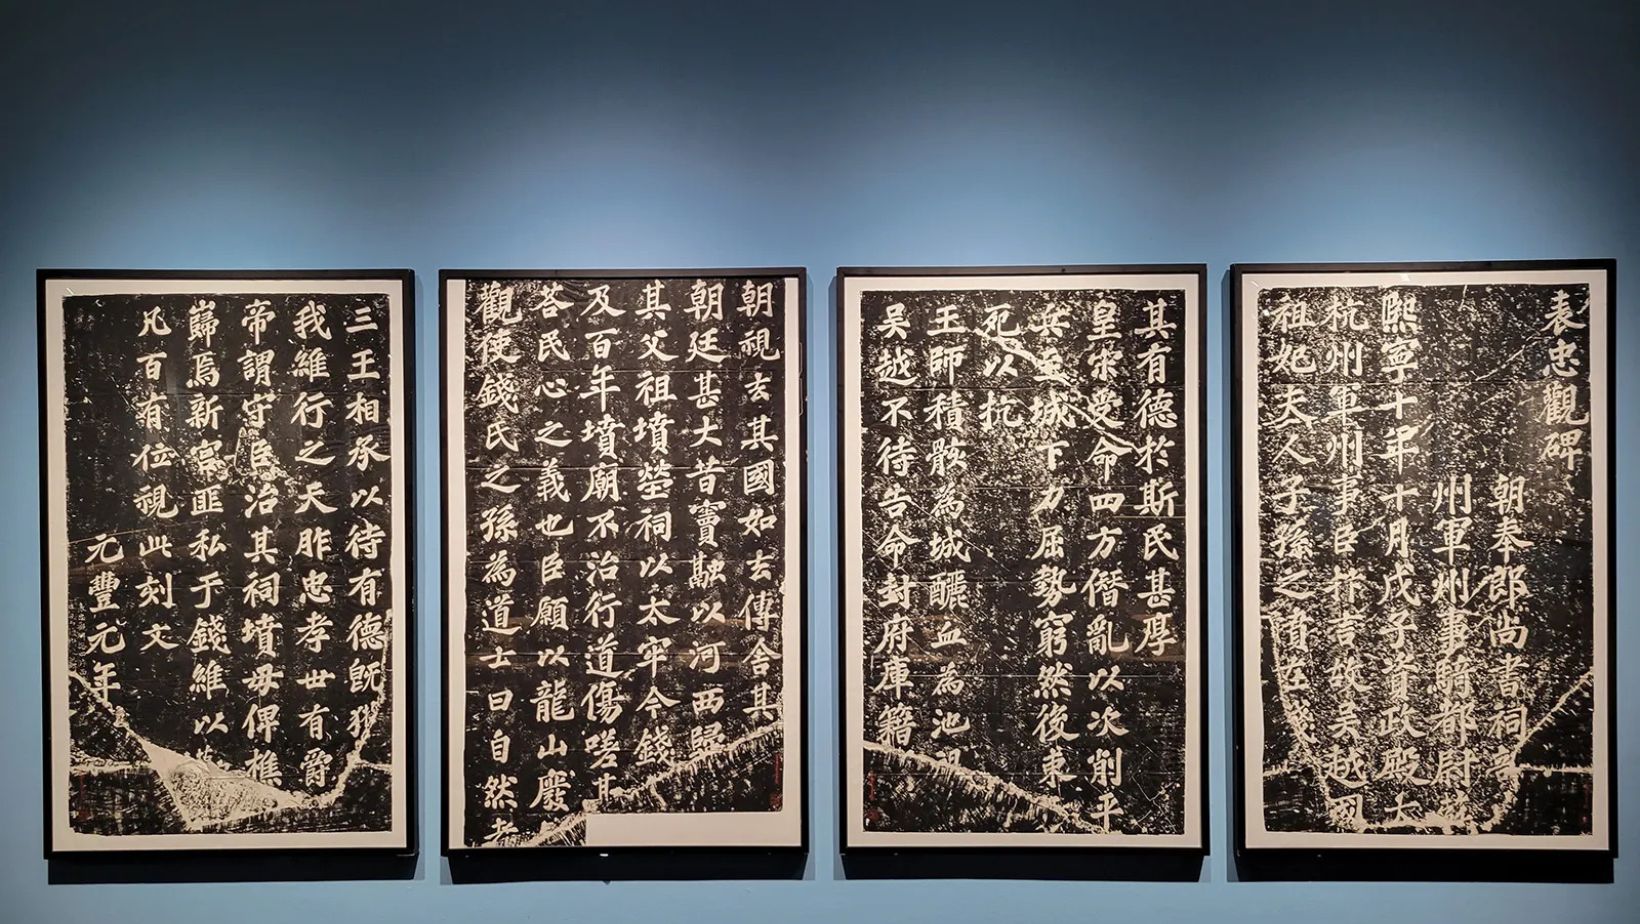 表忠觀碑
朝奉郎尚書祠部
州軍州事騎都尉
熙寧十年十月戊子資政殿大
杭州軍州事臣抃言故吳越國
祖妃夫人子孫之墳在錢
其有德於斯民甚厚
皇宋受命四方僭亂以次削平
兵至城下力屈勢窮然後束
死以抗
王師積骸為城釃血為池
吳越不待告命封府庫籍
朝視去其國如去傳舍其
朝廷甚大昔竇融以河西歸
其父祖墳塋祠以太牢今錢
及百年墳廟不治行道傷嗟其
荅民心之義也臣願以龍山廢
觀使錢氏之孫為道士曰自然者
三王相承以待有德既獲
我維行之天胙忠孝世有爵
帝謂守臣治其祠墳毋俾樵
歸焉新宮匪私于錢維以
凡百有位視此刻文
元豐元年